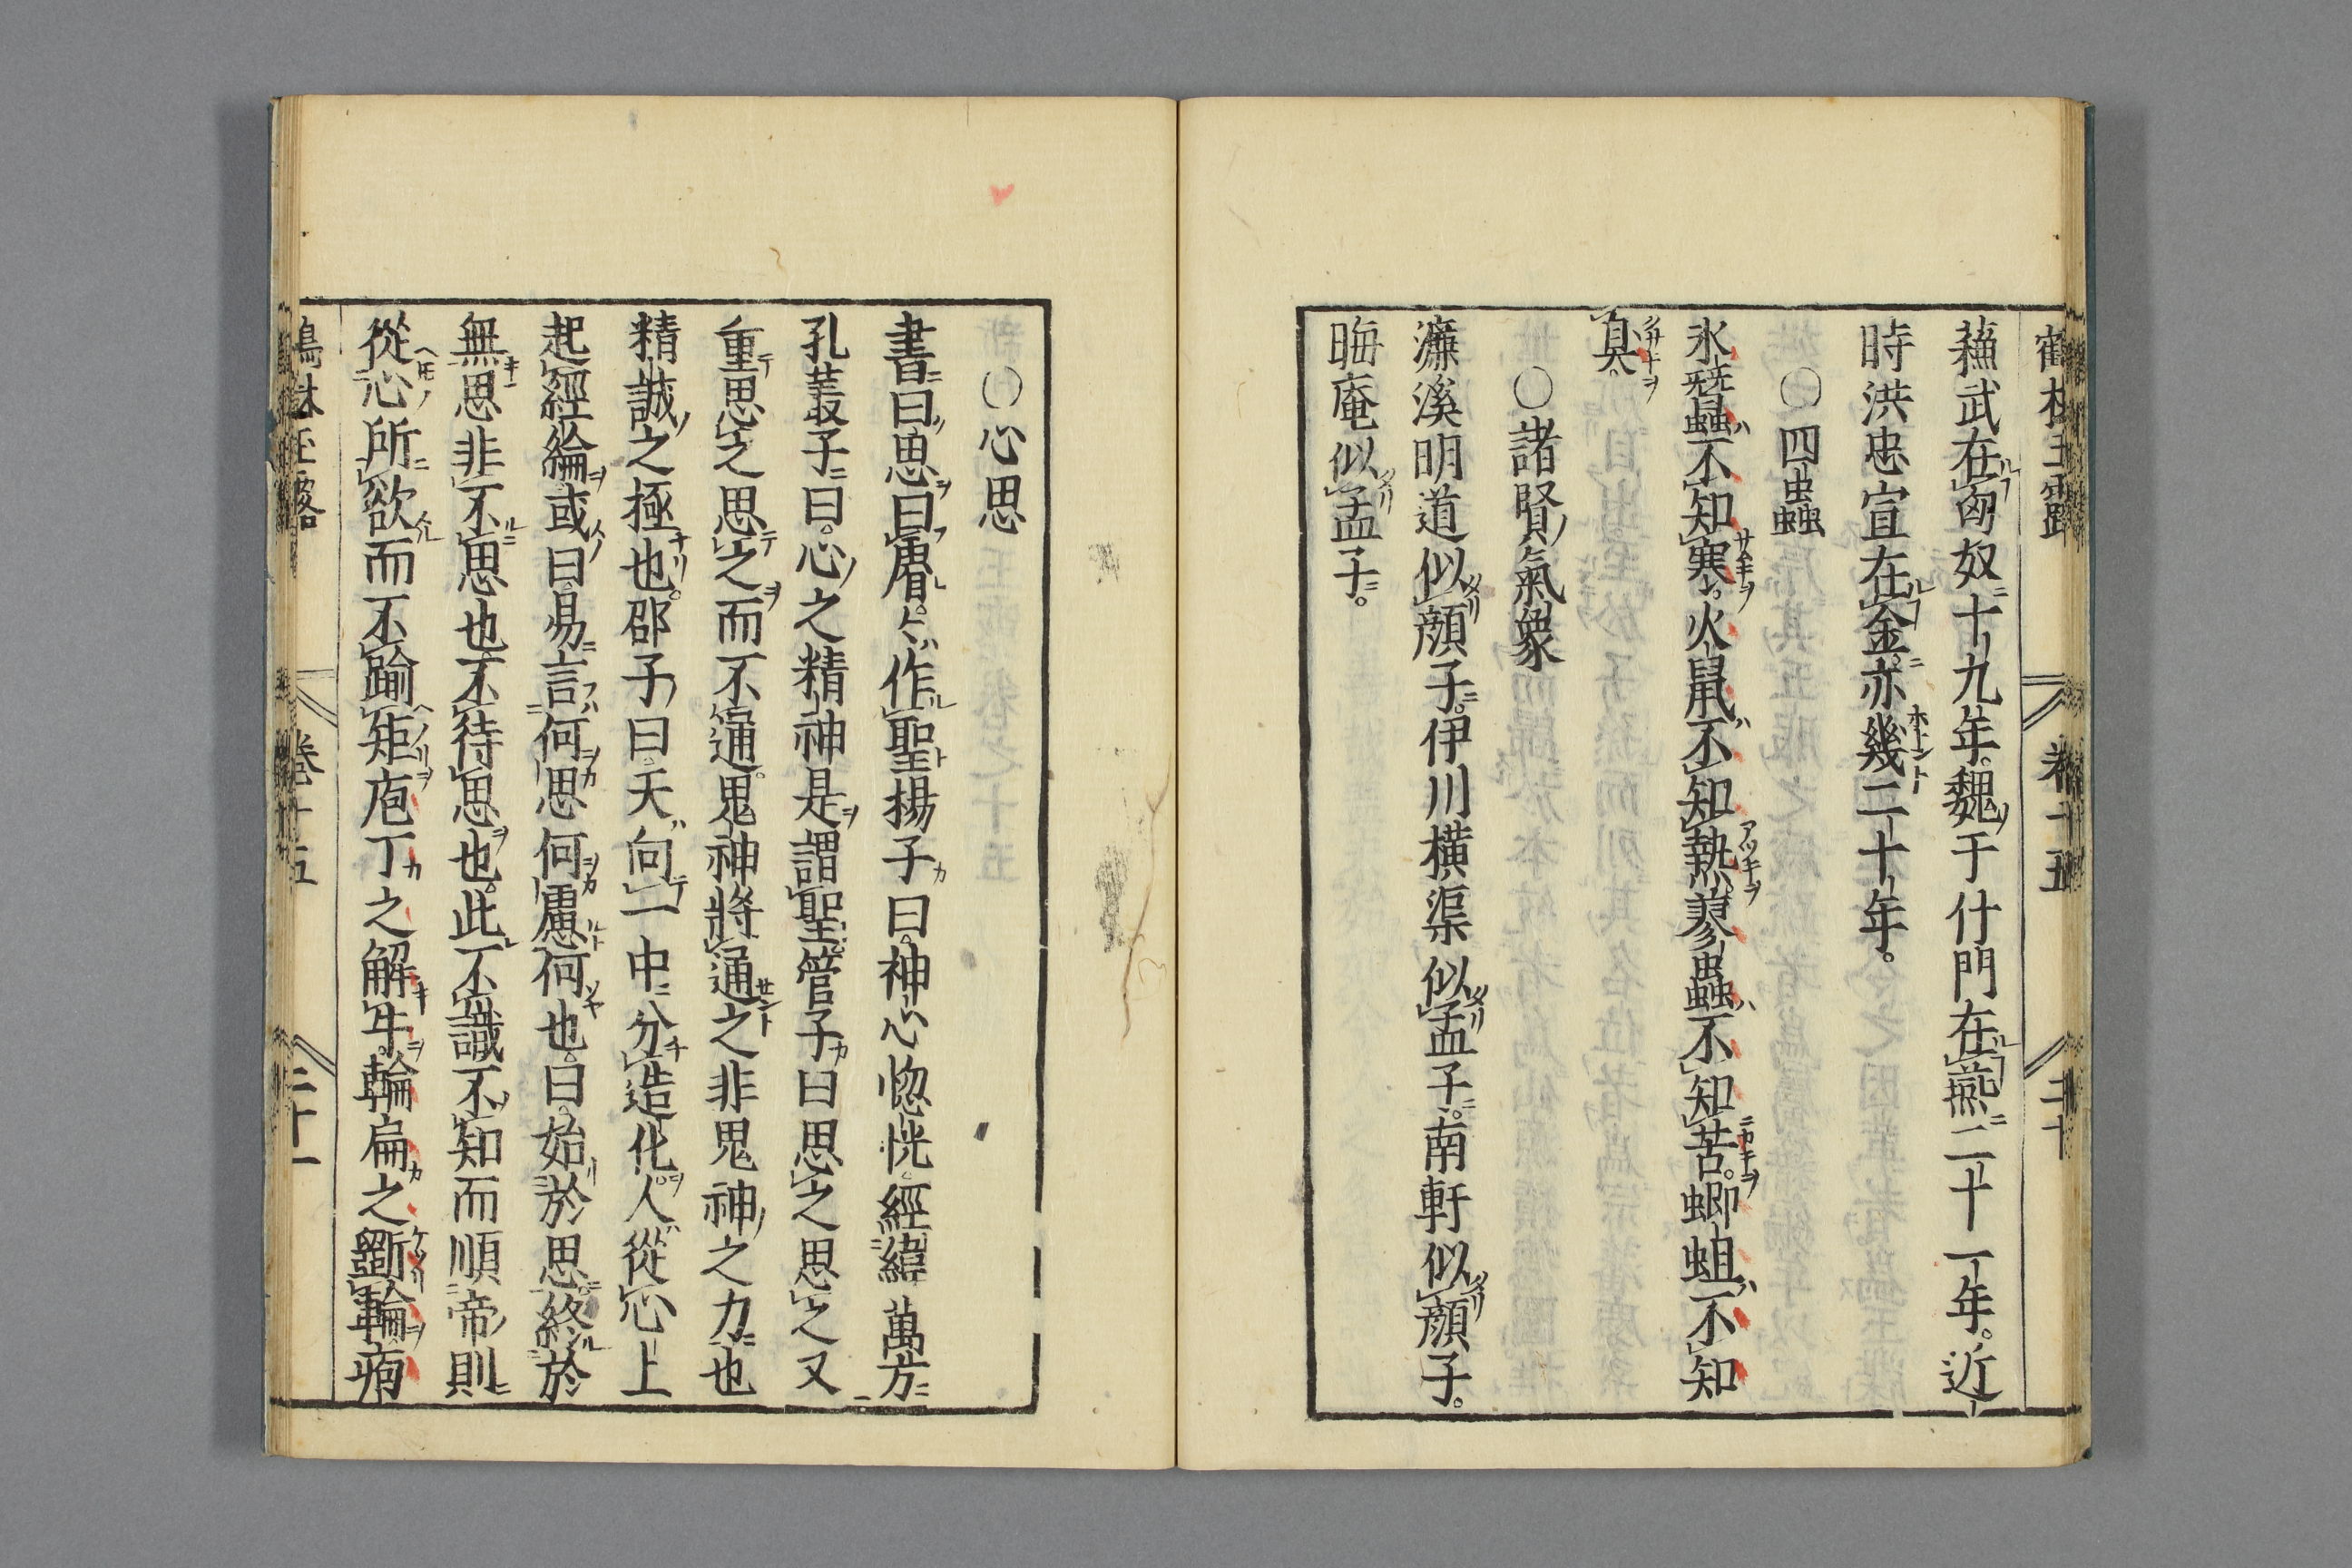 鶴林玉露 卷十五 二十
蘓武在匈奴十九年。魏于什門在燕二十一年。近
時洪忠宣在金。亦幾二十年。
〇四蟲
氷蠶不知寒。火鼠不知熱。蓼蟲不知苦。蝍蛆不知
臭。
〇諸賢氣象
濂溪明道似顏子。伊川橫渠似孟子。南軒似顏子。
晦庵似孟子。
〇心思
書曰思曰睿。睿作聖揚子曰。神心惚恍。經緯萬方
孔叢子曰。心之精神是謂聖管子曰思之思之又
重思之思之而不通。鬼神將通之非鬼神之力也
精誠之極也。邵子曰。天向一中分造化。人從心上
起經綸或曰。易言何思何慮何也。曰。始於思。終於
無思非不思也不待思也。此不識不知而順帝則
從心所欲而不踰矩庖丁之解牛。輪扁之斲輪。痀
卷十五 二十一